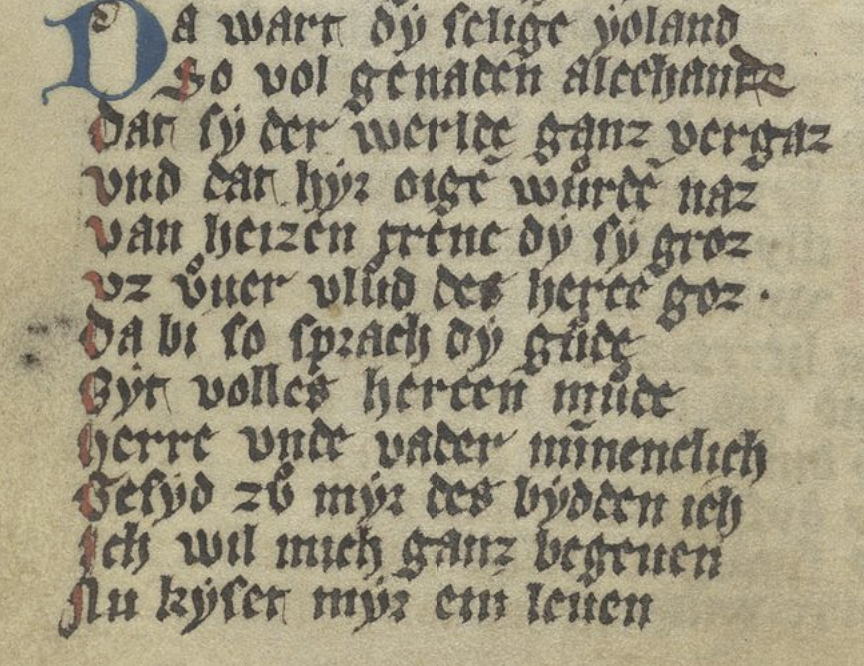 Da wart dÿ selige ÿoland
So vol genaden alcehant
Dat sÿ der werlde ganz vergaz
vnd dat hÿr oigē wůrdē naz
van heizen trene dÿ sÿ groz
vz ůuer vlůd des hercē goz.
Da bi so sprach dÿ gůde
Sÿt volles hercen můde
herre vnde vader mīnenclich
Gesÿd zů mÿr des bÿdden ich
Ich wil mich ganz begeuen
Nu kÿset mÿr ein leuen